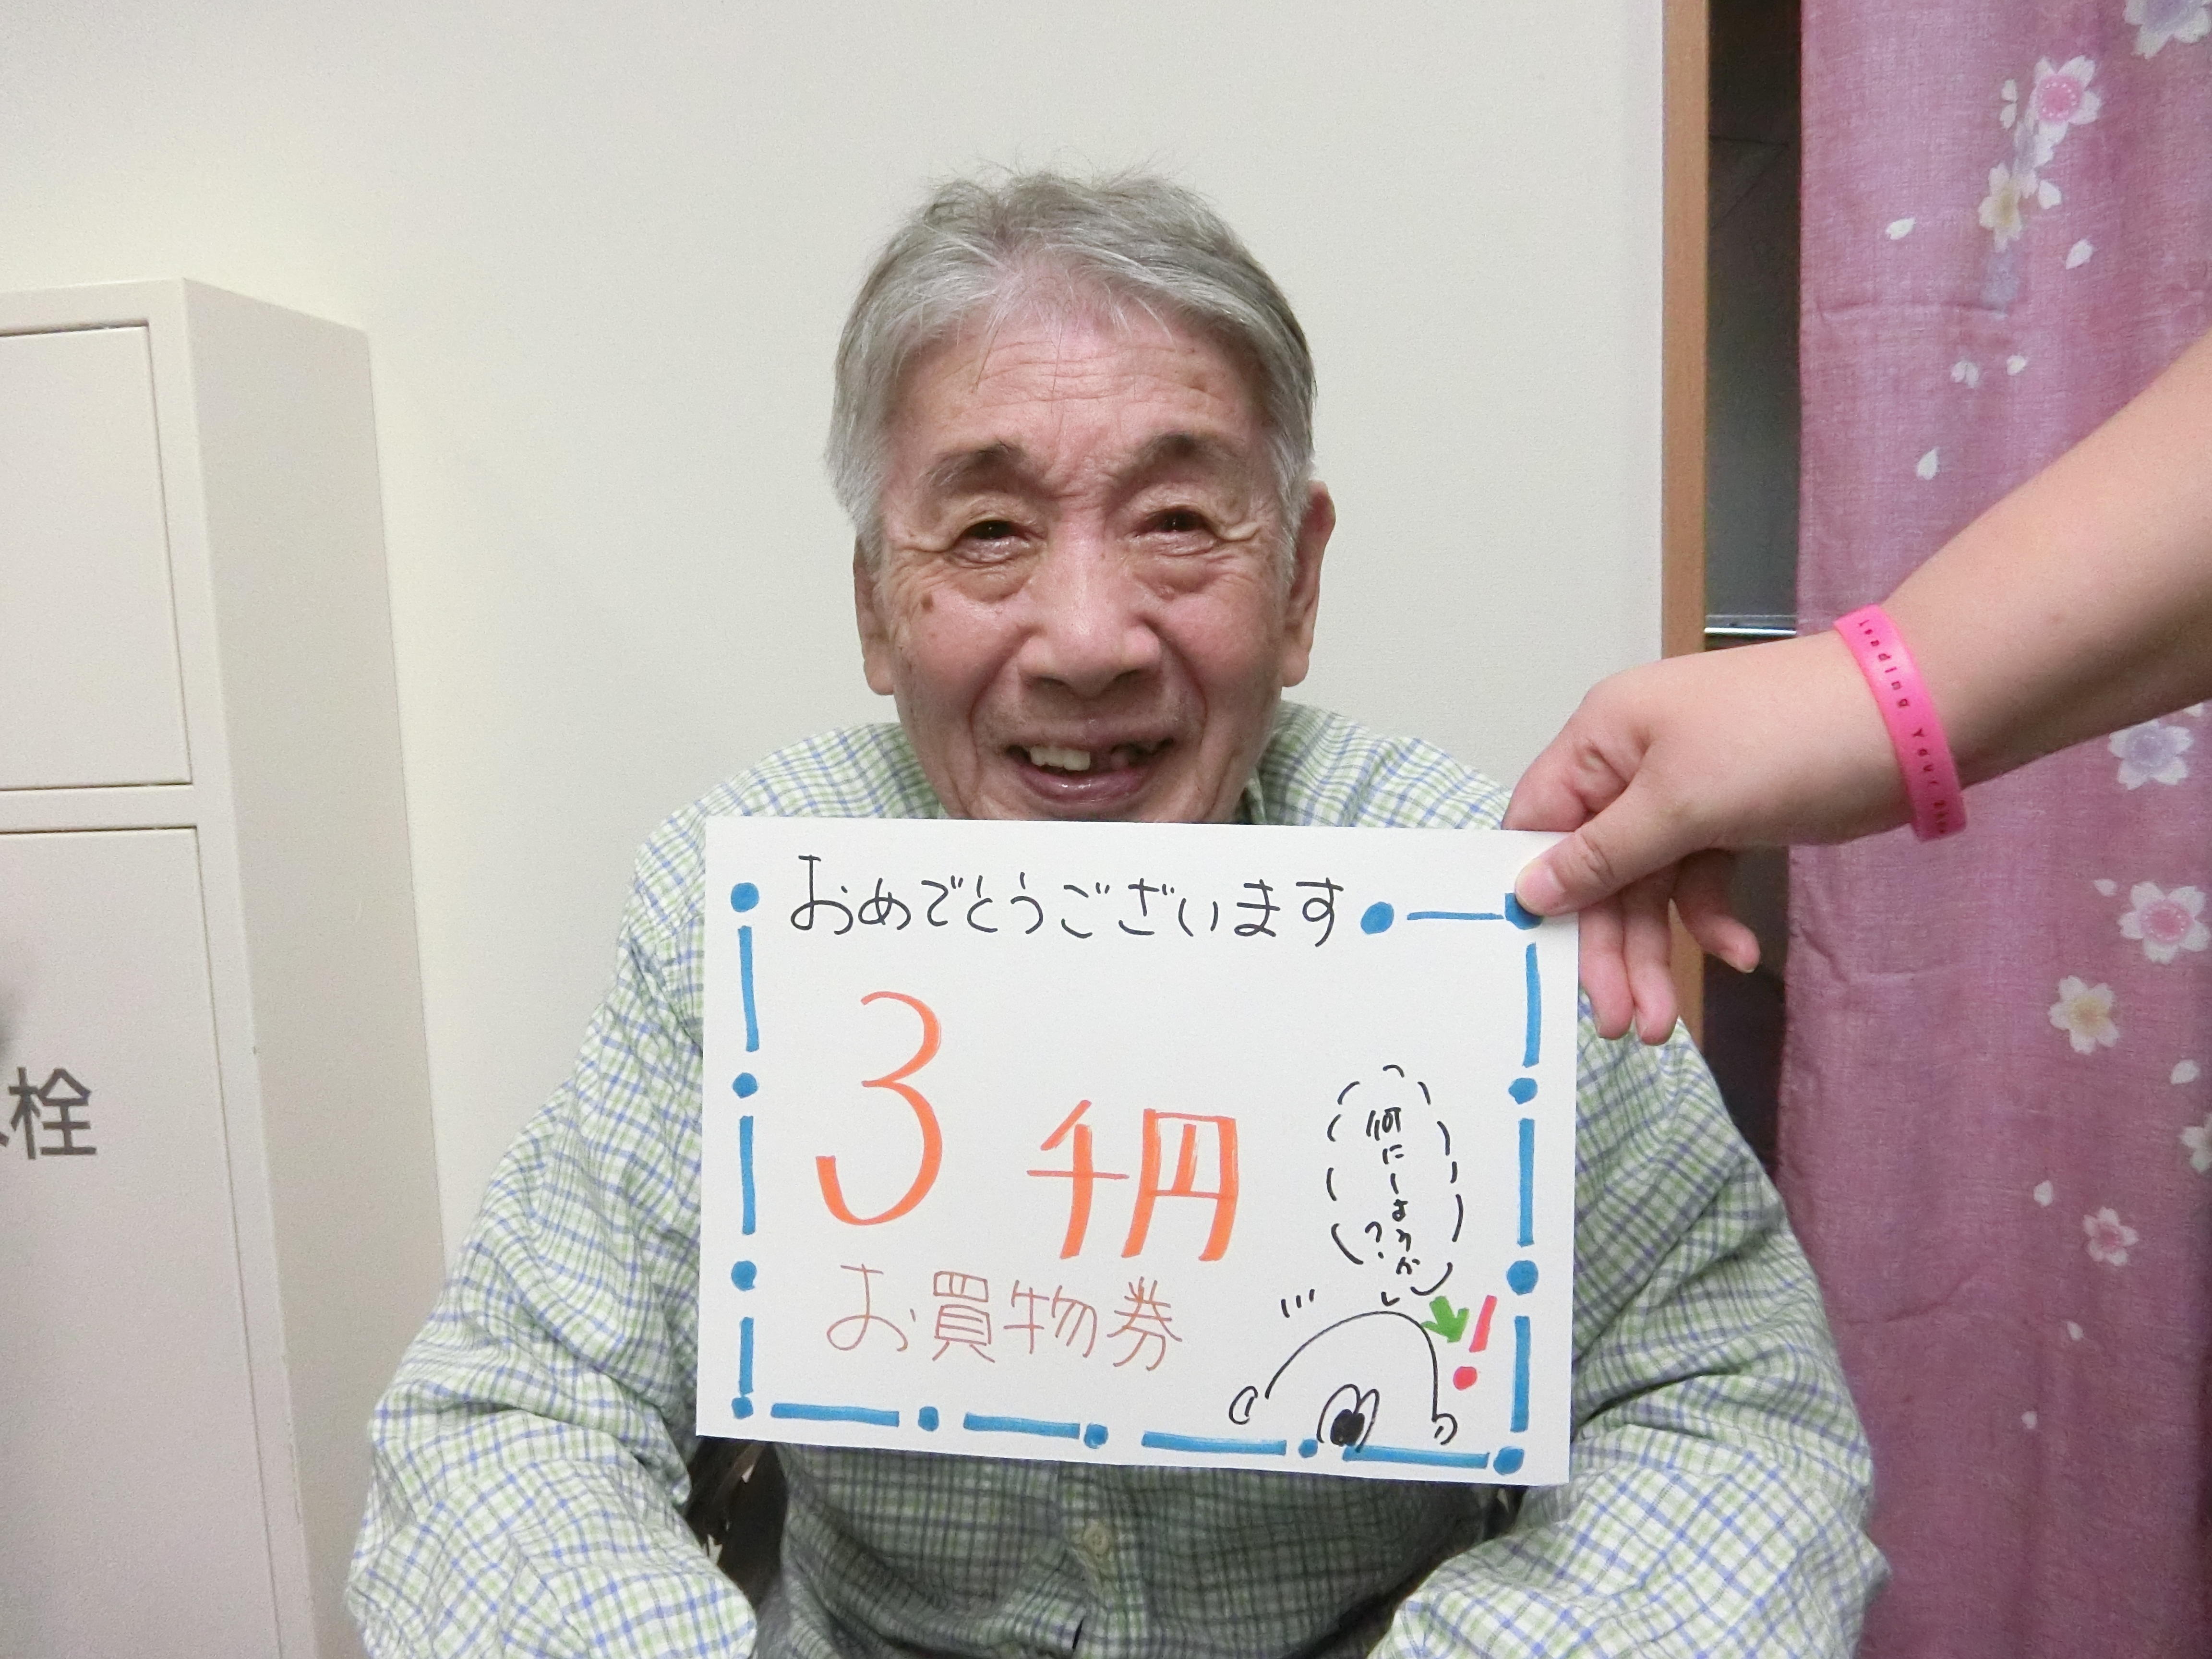 おめでとうございます
3千円
お買物券
何にしようか?
栓